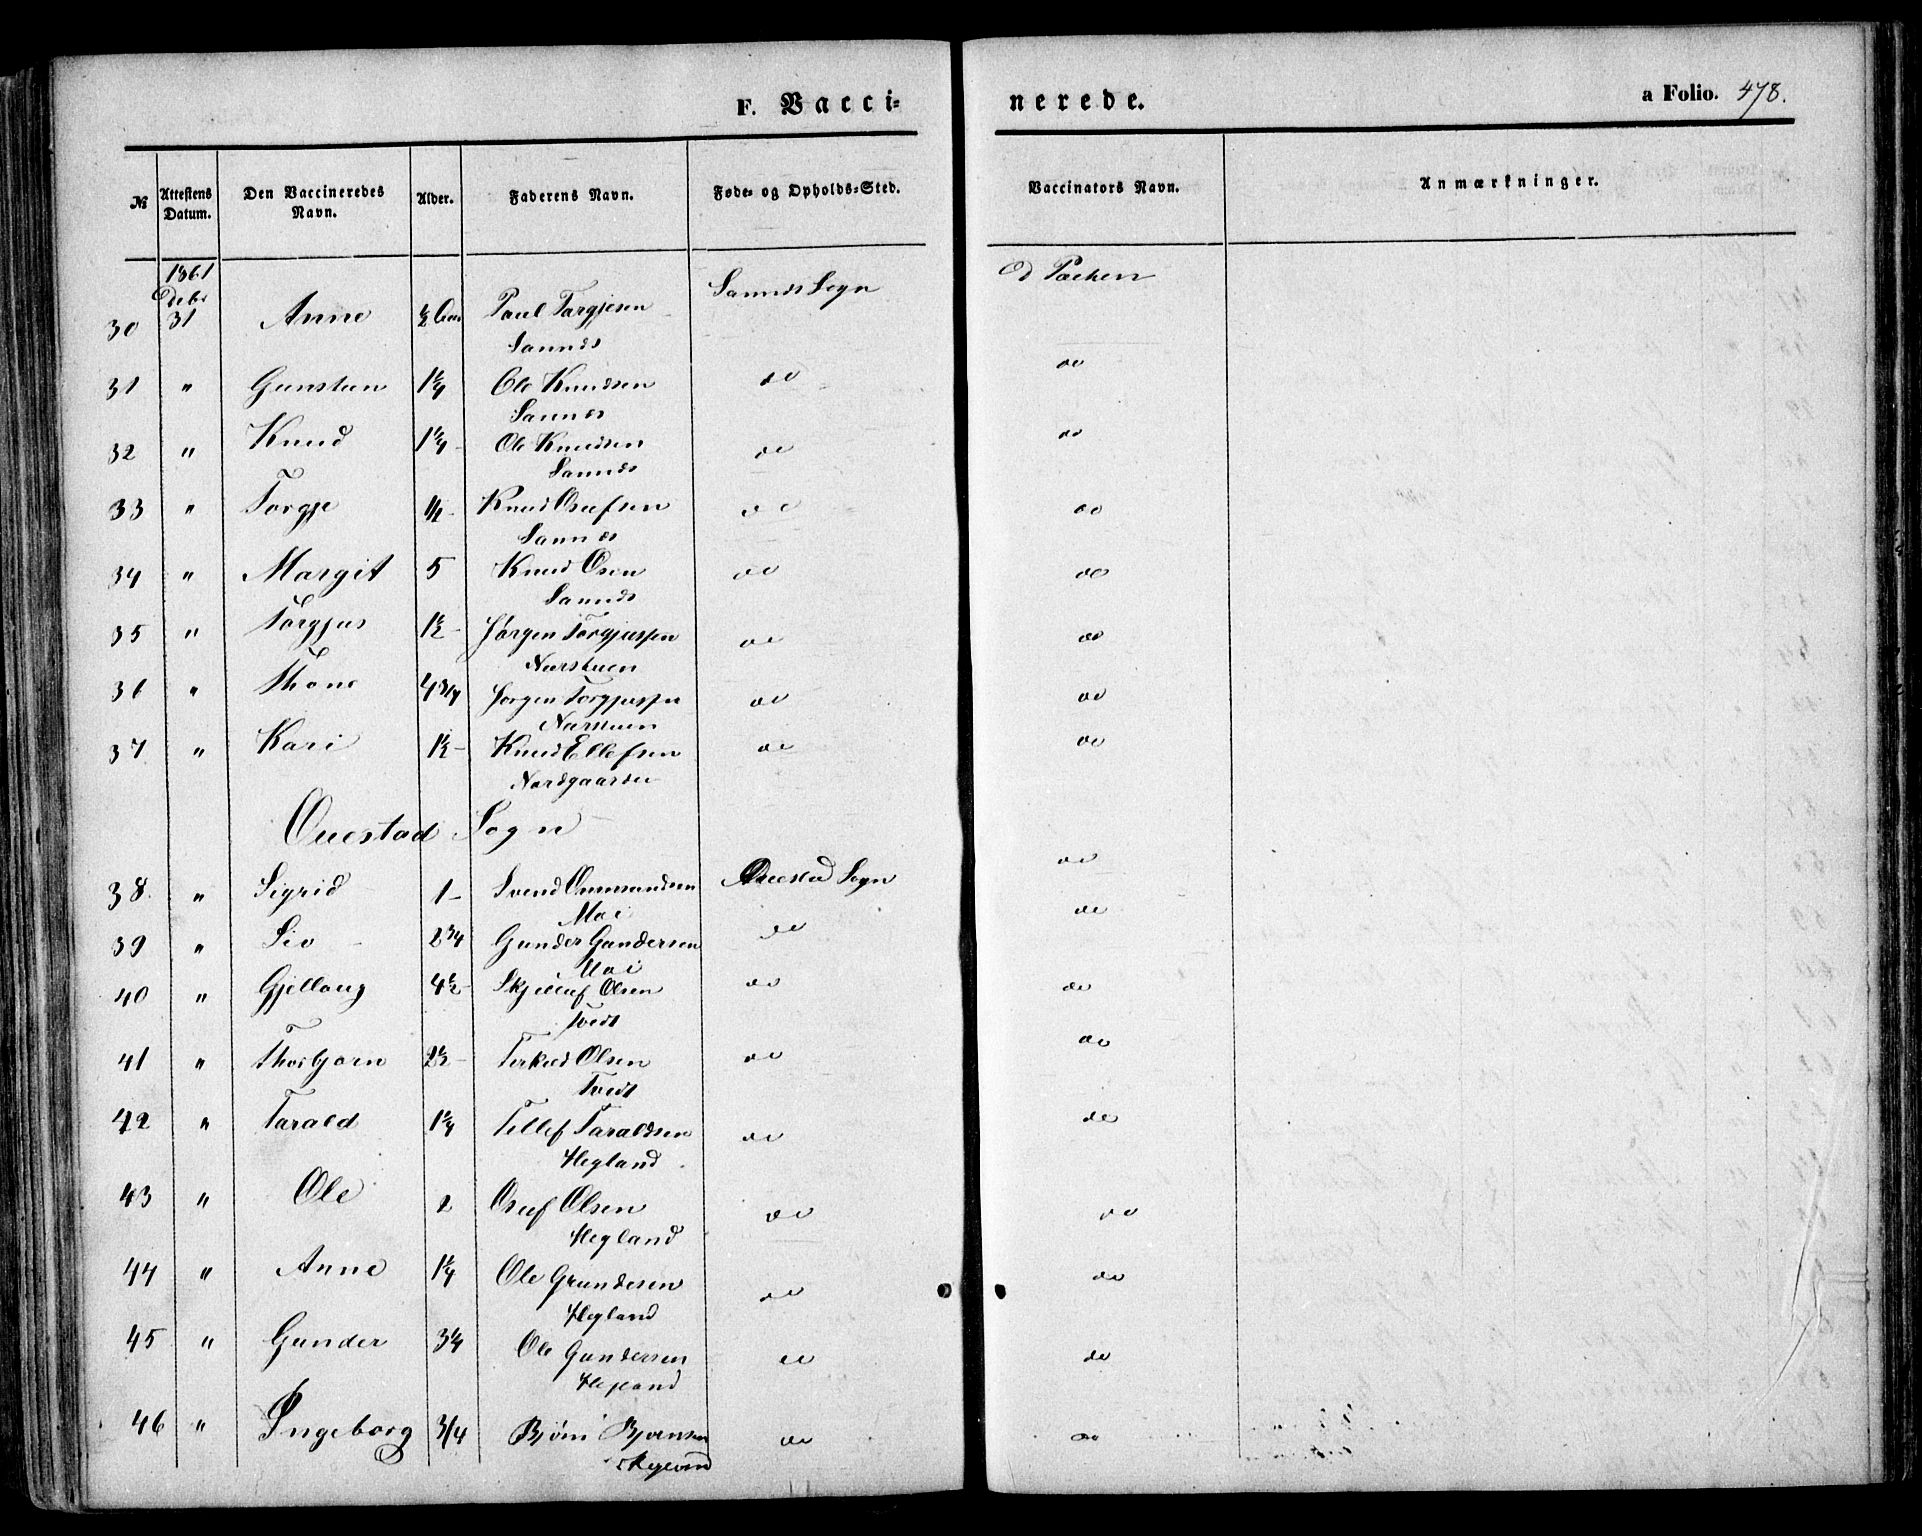 F. Vacci-
nerede.
a Folio. 478.
№ Attestens Datum. Den Vaccineredes Navn. Alder. Faderens Navn. Føde- og Opholds-Sted. Vaccinators Navn. Anmærkninger.
1861
Debr
30 31 Anne ½ Paul Targjesen Sannes Sogn
Sannes
31 " Gunstun 1¼ Ole Knudsen do do
Sannes
32 " Knud 1¼ Ole Knudsen do do
Sannes
33 " Torgje ½ Knud Osufsen do do
Sannes
34 " Margit 5 Knud Osen do do
Sannes
35 " Torgjus 1½ Jørgen Torgjussen do do
Nørstuen
36 " Thone 4 3/4 Jørgen Torgjussen do do
Nørstuen
37 " Kari 1½ Knud Ellefsen do do
Nordgaarden
Ouestad Sogn
38 " Sigrid 1 Svend Ommundsen Ouestad Sogn do
Moi
39 " Siv 2 3/4 Gunder Gundersen do do
Moi
40 " Gjellaug 4½ Skjeluf Olsen do do
Tvedt
41 " Thorbjørn 2½ Terkild Olsen do do
Tvedt
42 " Tarald 1¼ Tellef Taraldsen do do
Hegland
43 " Ole 2 Osuf Olsen do do
Hegland
44 " Anne 1¼ Ole Grundesen do do
Hegland
45 " Gunder 3¼ Ole Gundersen do do
Hegland
46 " Ingeborg 3/4 Bjørn Bjørnsen do do